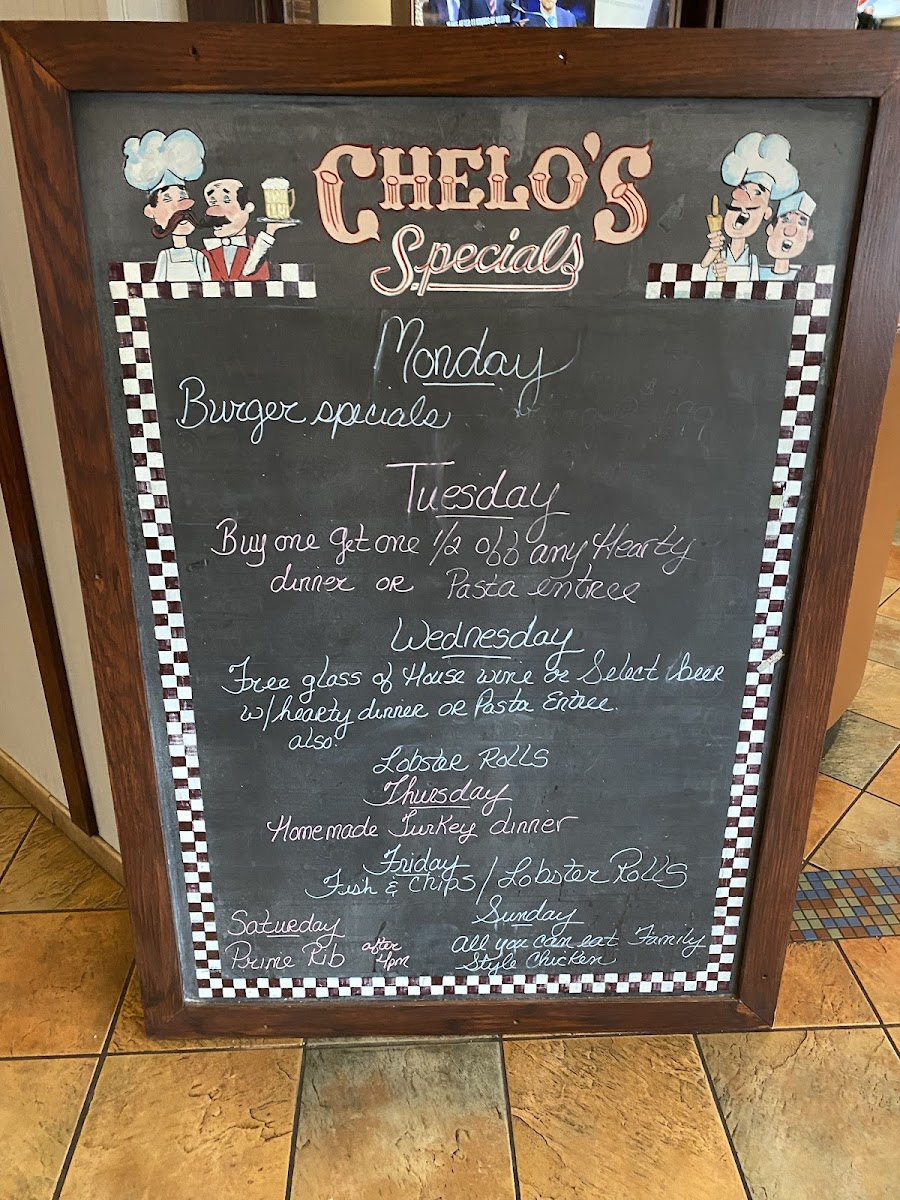 CHELO'S
Specials
Monday
Burger specials
Tuesday
Buy one get one 1/2 off any Hearty
dinner or Pasta entree
Wednesday
Free glass of House wine or Select beer
w/hearty dinner or Pasta Entree.
also:
Lobster Rolls
Thursday
Homemade Turkey dinner
Friday
Fish & chips / Lobster Rolls
Saturday
Prime Rib after 4pm
Sunday
all you can eat Family
Style Chicken